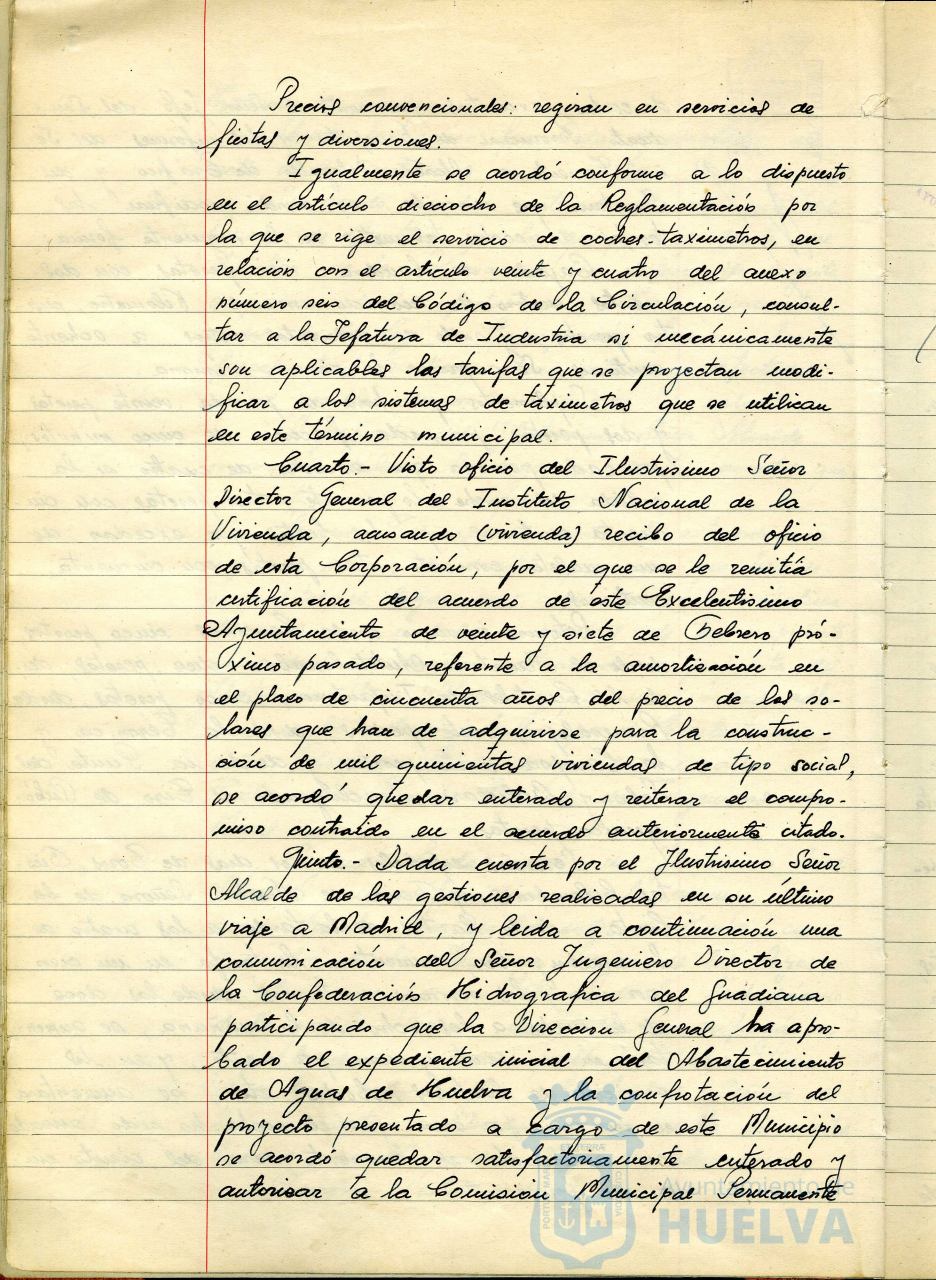 Precios convencionales: regiran en servicios de
fiestas y diversiones.
Igualmente se acordó conforme a lo dispuesto
en el artículo dieciocho de la Reglamentación por
la que se rige el servicio de coches-taximetros, en
relación con el artículo veinte y cuatro del anexo
número seis del Código de la Circulación, consul-
tar a la Jefatura de Industria si mecánicamente
son aplicables las tarifas que se proyectan modi-
ficar a los sistemas de táximetros que se utilican
en este término municipal.
Cuarto.- Visto oficio del Ilustrisimo Señor
Director General del Instituto Nacional de la
Vivienda, acusando (vivienda) recibo del oficio
de esta Corporación, por el que se le remitía
certificación del acuerdo de este Excelentísimo
Ayuntamiento de veinte y siete de Febrero pró-
ximo pasado, referente a la amortización en
el plazo de cincuenta años del precio de los so-
lares que han de adquirirse para la construc-
ción de mil quinientas viviendas de tipo social,
se acordó quedar enterado y reiterar el compro-
miso contraído en el acuerdo anteriormente citado.
Quinto.- Dada cuenta por el Ilustrisimo Señor
Alcalde de las gestiones realizadas en su último
viaje a Madrid, y leida a continuación una
comunicación del Señor Ingeniero Director de
la Confederación Hidrografica del Guadiana
participando que la Direccion General ha apro-
bado el expediente inicial del Abastecimiento
de Aguas de Huelva y la confrotación del
proyecto presentado a cargo de este Municipio
se acordó quedar satisfactoriamente enterado y
autorizar a la Comision Municipal Permanente
Ayuntamiento de
HUELVA